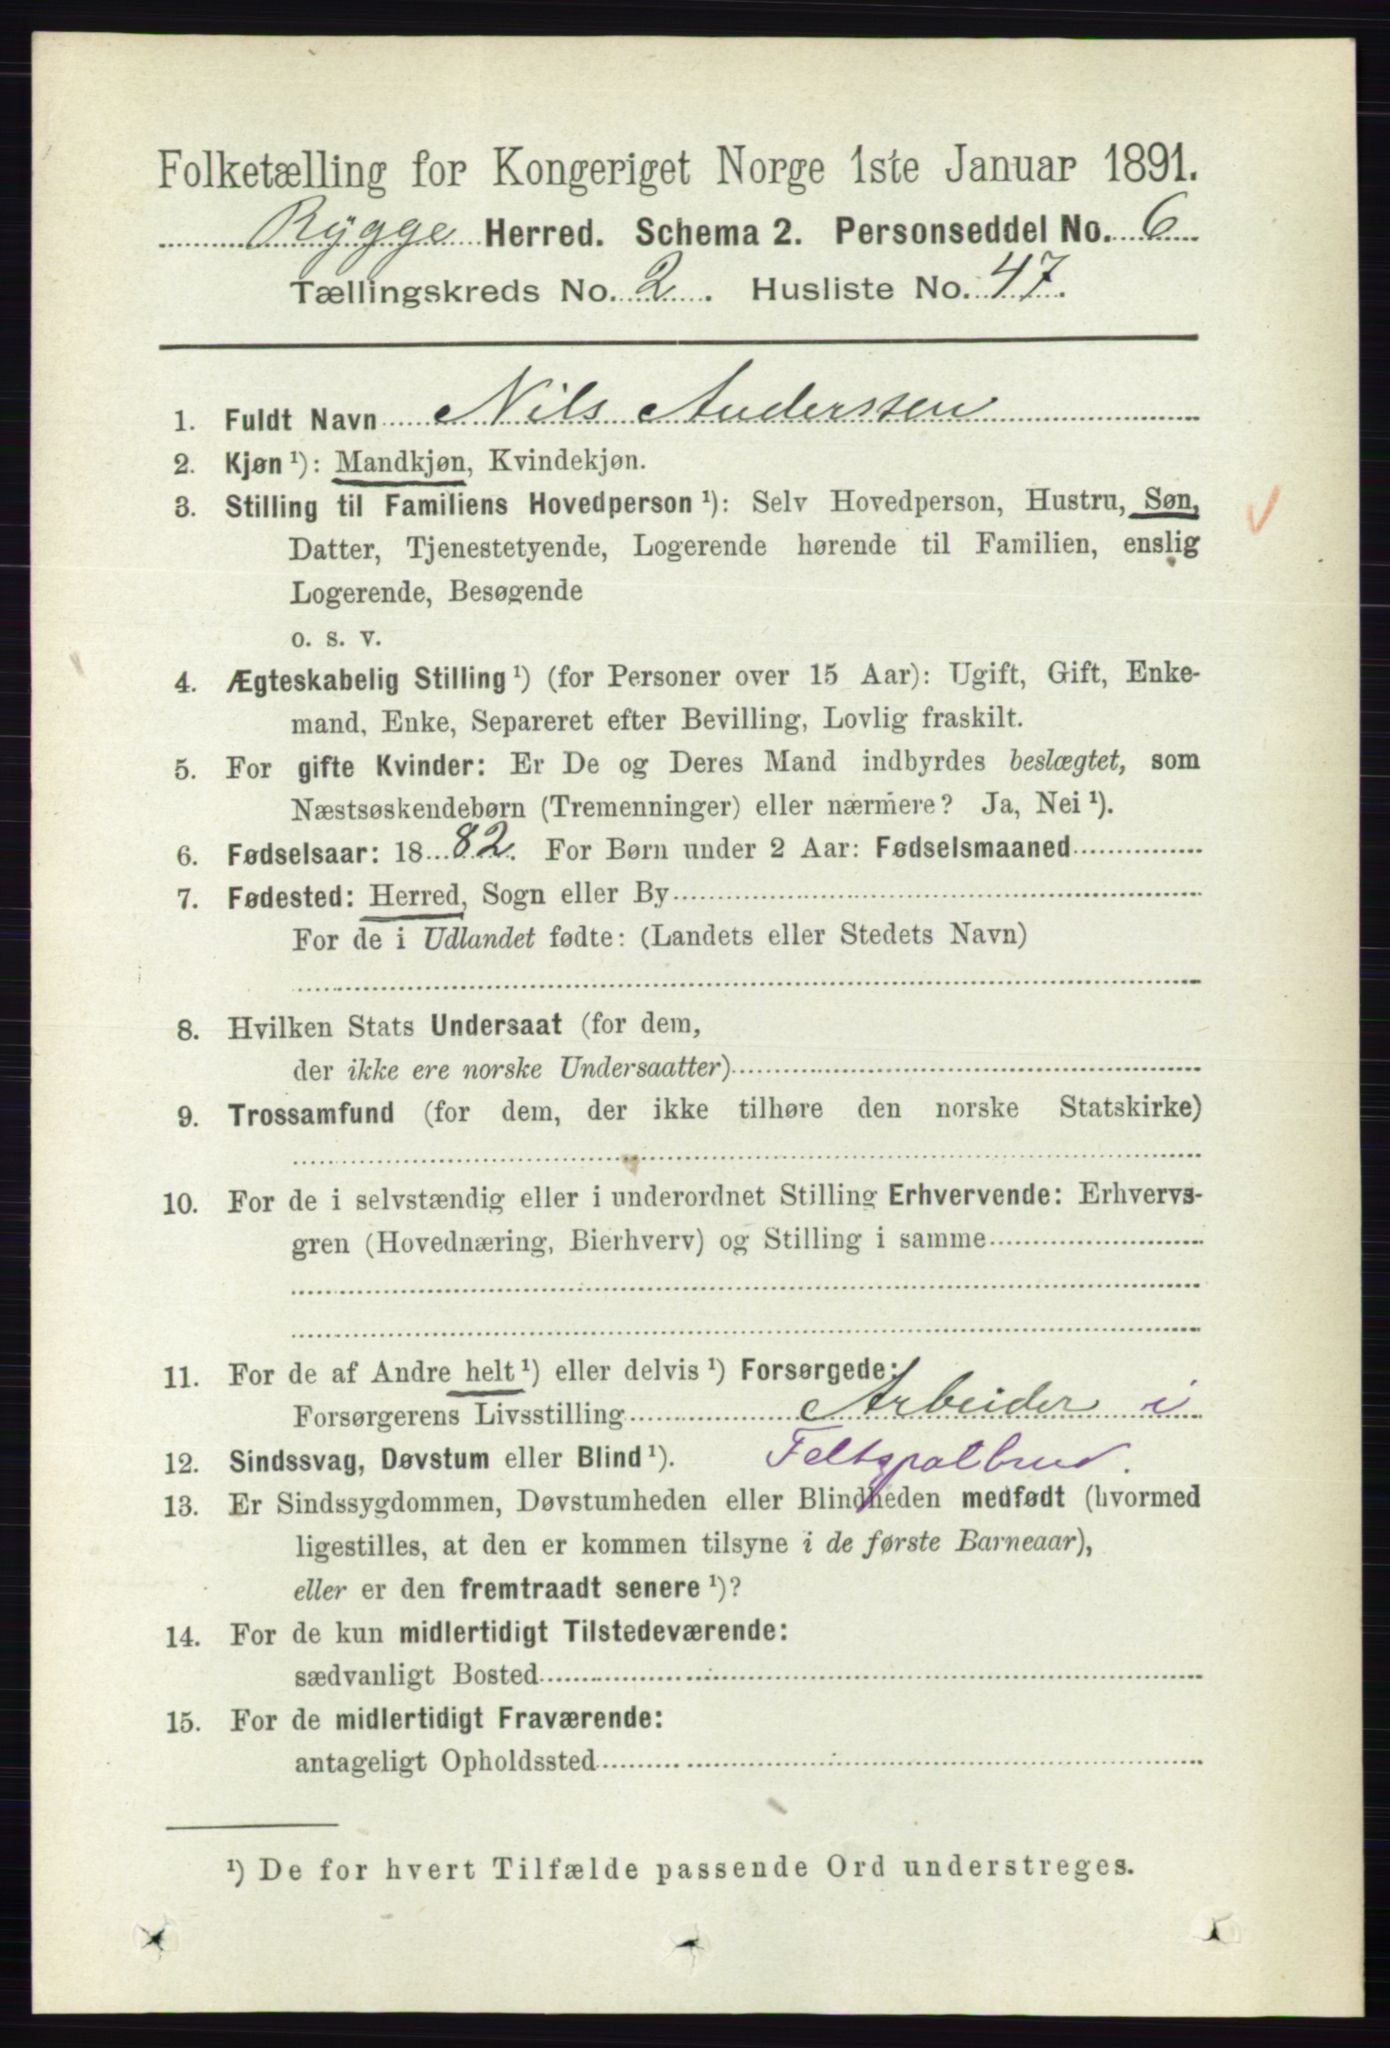 Folketælling for Kongeriget Norge 1ste Januar 1891.
Rygge Herred. Schema 2. Personseddel No. 6
Tællingskreds No. 2. Husliste No. 47.
1. Fuldt Navn Nils Anderssen
2. Kjøn ¹): Mandkjøn, Kvindekjøn.
3. Stilling til Familiens Hovedperson ¹): Selv Hovedperson, Hustru, Søn,
Datter, Tjenestetyende, Logerende hørende til Familien, enslig
Logerende, Besøgende
o. s. v.
4. Ægteskabelig Stilling ¹) (for Personer over 15 Aar): Ugift, Gift, Enke-
mand, Enke, Separeret efter Bevilling, Lovlig fraskilt.
5. For gifte Kvinder: Er De og Deres Mand indbyrdes beslægtet, som
Næstsøskendebørn (Tremenninger) eller nærmere? Ja, Nei ¹).
6. Fødselsaar: 1882. For Børn under 2 Aar: Fødselsmaaned
7. Fødested: Herred, Sogn eller By
For de i Udlandet fødte: (Landets eller Stedets Navn)
8. Hvilken Stats Undersaat (for dem,
der ikke ere norske Undersaatter)
9. Trossamfund (for dem, der ikke tilhøre den norske Statskirke)
10. For de i selvstændig eller i underordnet Stilling Erhvervende: Erhvervs-
gren (Hovednæring, Bierhverv) og Stilling i samme
11. For de af Andre helt ¹) eller delvis ¹) Forsørgede:
Forsørgerens Livsstilling Arbeider i
12. Sindssvag, Døvstum eller Blind ¹). Feltspatbrud.
13. Er Sindssygdommen, Døvstumheden eller Blindheden medfødt (hvormed
ligestilles, at den er kommen tilsyne i de første Barneaar),
eller er den fremtraadt senere ¹)?
14. For de kun midlertidigt Tilstedeværende:
sædvanligt Bosted
15. For de midlertidigt Fraværende:
antageligt Opholdssted
¹) De for hvert Tilfælde passende Ord understreges.